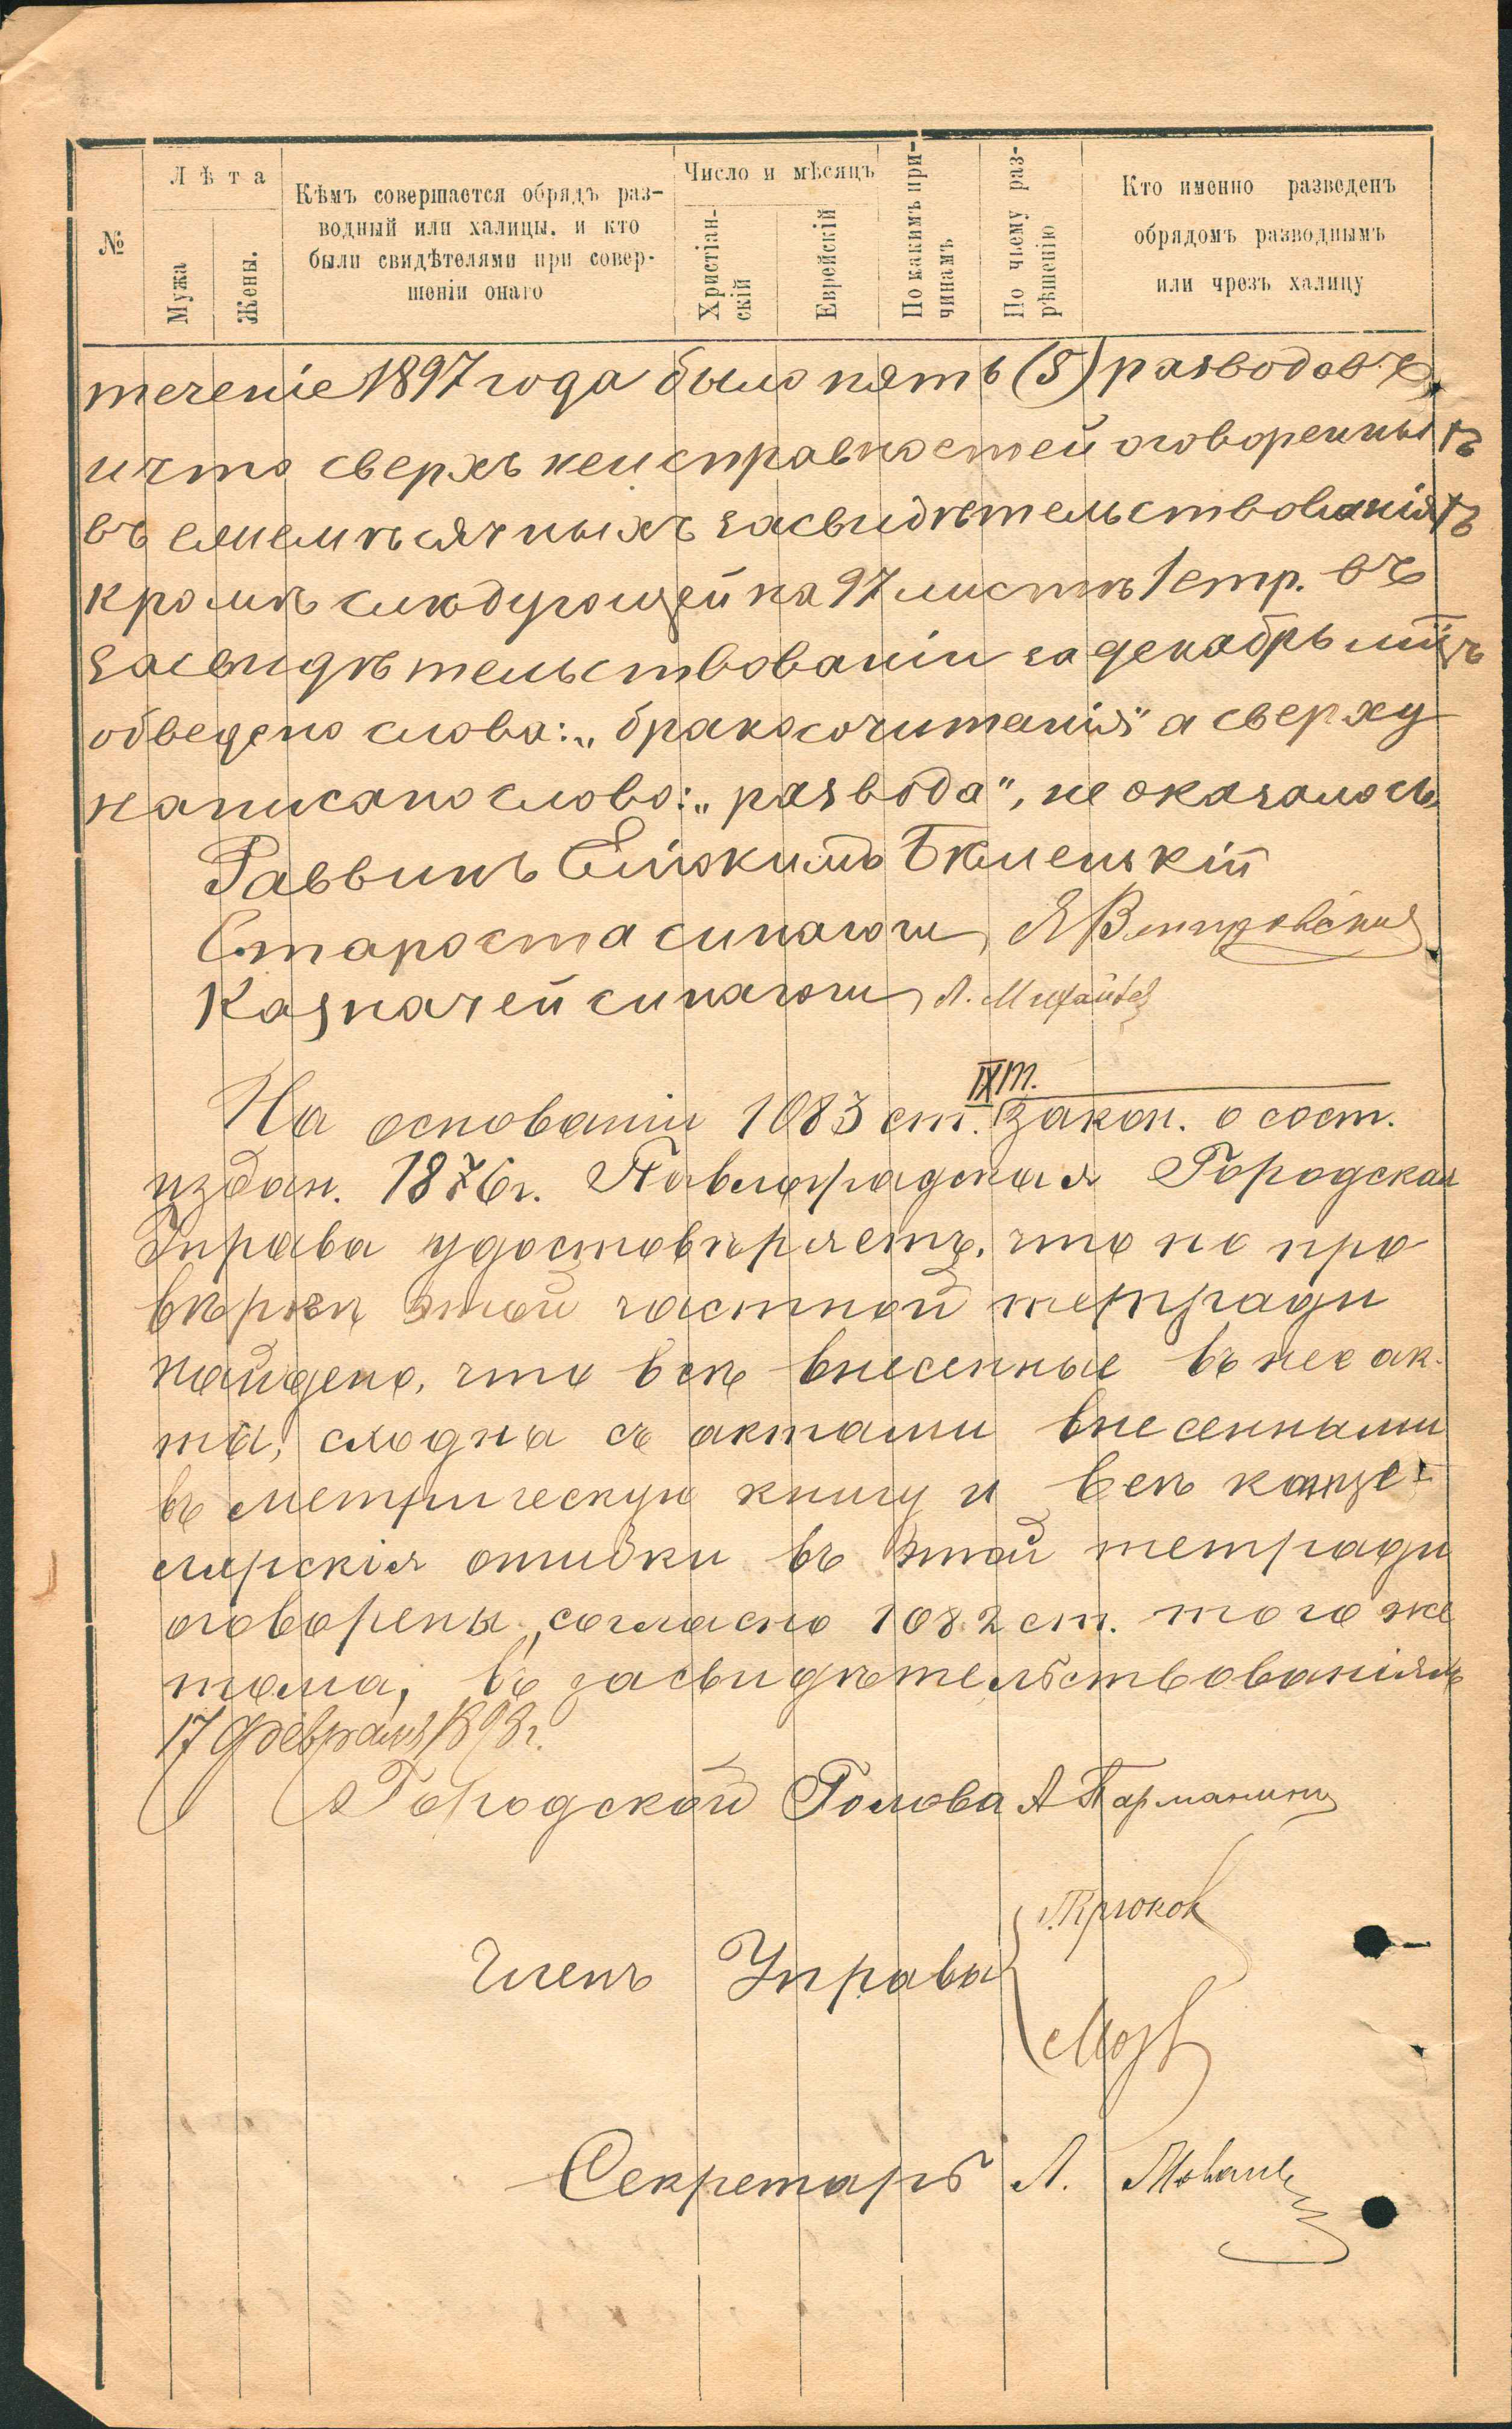 №
Лѣта
Мужа
Жены.
Кѣмъ совершается обрядъ раз-
водный или халицы. и кто
были свидѣтелями при совер-
шеніи онаго
Число и мѣсяцъ
Христіан-
скій
Еврейскій
По какимъ при-
чинамъ
По чьему раз-
рѣшенію
Кто именно разведенъ
обрядомъ разводнымъ
или чрезъ халицу
теченіе 1897 года было пять (5) разводовъ,
и что сверхъ неисправностей оговоренныхъ
въ ежемѣсячныхъ засвидѣтельствованіяхъ
кромѣ слѣдующей на 97 листѣ 1 стр. въ
засвидѣтельствованіи за декабрь мцъ
обведено слова: „бракосочитанія" а сверху
написано слово: „развода", не оказалось
Раввинъ
Староста синагоги
Казначей синагоги
На основаніи 1083 ст. IX т. закон. о сост.
издан. 1876 г. Павлоградская Городская
Управа удостовѣряетъ, что по про
вѣркѣ этой частной тетради
найдено, что всѣ внесенные въ нее ак-
ты, сходна съ актами внесенными
въ метрическую книгу и всѣ канце-
лярскія ошибки въ этой тетради
оговорены, согласно 1082 ст. того же
тома, въ засвидѣтельствованіяхъ
17 Февраля 1898 г.
Городской Голова А
Членъ Управы Крюков
Секретарь Л.